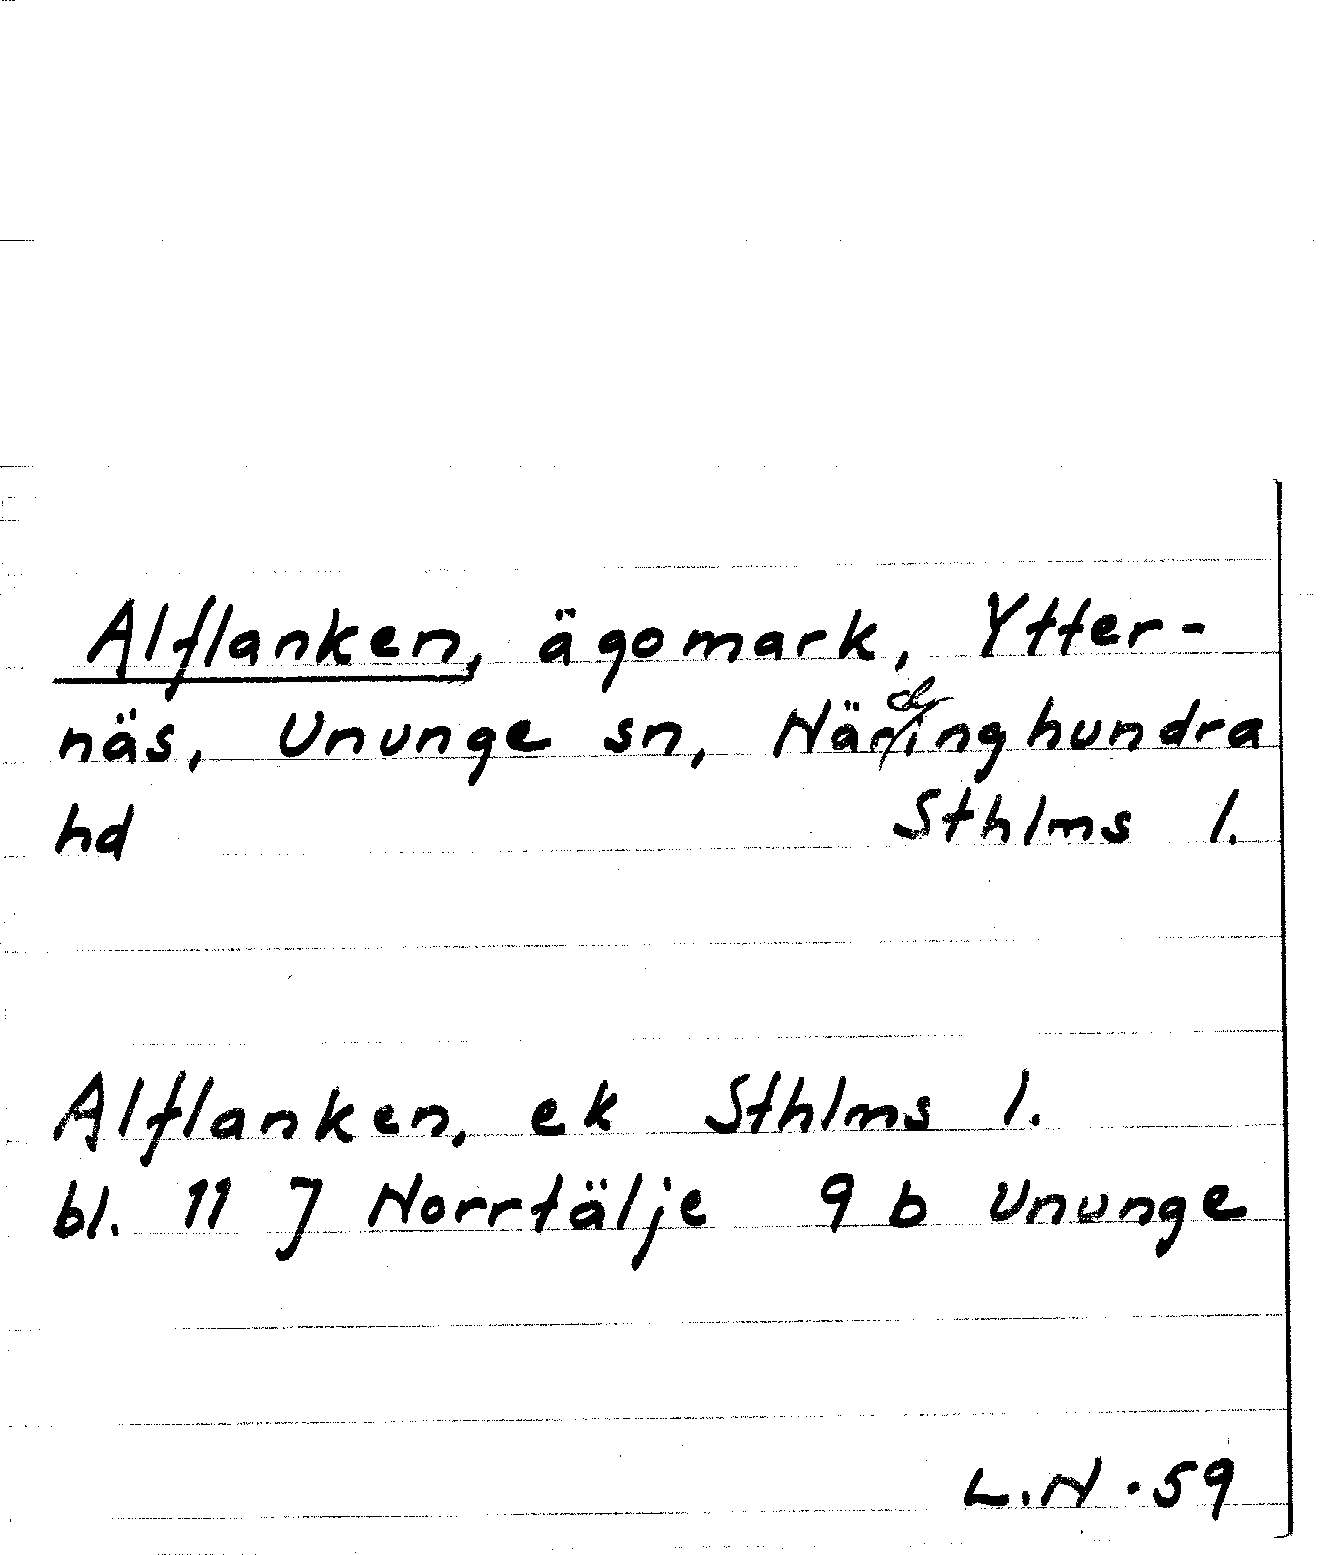 Alflanken, ägomark, Ytter-
näs, Ununge sn, Närdinghundra
hd Sthlms l.
Alflanken, ek Sthlms l.
bl. 11 J Norrtälje 9 b Ununge
L.N. 59